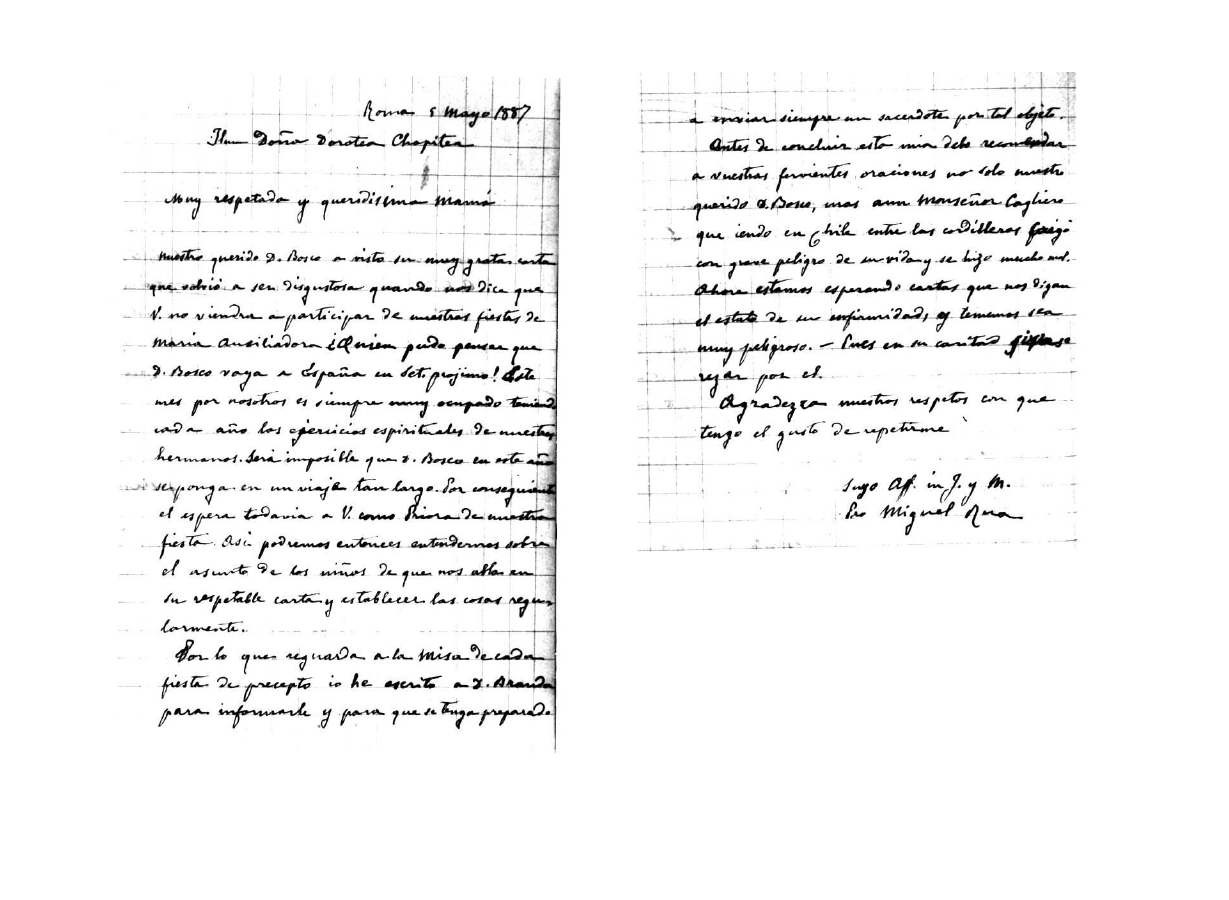 Roma 5 Mayo 1887
Ilma Doña Dorotea Chopitea
Muy respetada y queridisima Mamá
nuestro querido D. Bosco a visto su muy grata carta
que volvió a ser disgustosa quando nos dice que
V. no viendra a participar de nuestras fiestas de
Maria Auxiliadora ¿Quien pudo pensar que
D. Bosco vaya a España en Set. projimo! Este
mes por nosotros es siempre muy ocupado teniendo
cada año los ejercicios espirituales de nuestros
hermanos. Será imposible que D. Bosco en este año
se ponga en un viaje tan largo. Por consequiente
el espera todavia a V. como Priora de nuestra
fiesta. Asi podremos entonces entendernos sobre
el asunto de los niños de que nos abla en
su respetable carta y establecer las cosas regu-
larmente.
Por lo que reguarda a la Misa de cada
fiesta de precepto io he escrito a D. Aranda
para informarle y para que se tenga preparado
a enviar siempre un sacerdote por tal objeto.
Antes de concluir esta mia debo recomendar
a vuestras fervientes oraciones no solo nuestro
querido D. Bosco, mas aun Monseñor Cagliero
que iendo en Chile entre las cordilleras
con grave peligro de su vida y se hizo mucho mal.
Ahora estamos esperando cartas que nos digan
el estado de su enfirmidad, y tememos sea
muy peligroso. - Pues en su caritad
regar por el.
Agradezca nuestros respetos con que
tengo el gusto de repetirme
Suyo Aff. in J. y M.
Pro Miguel Rua